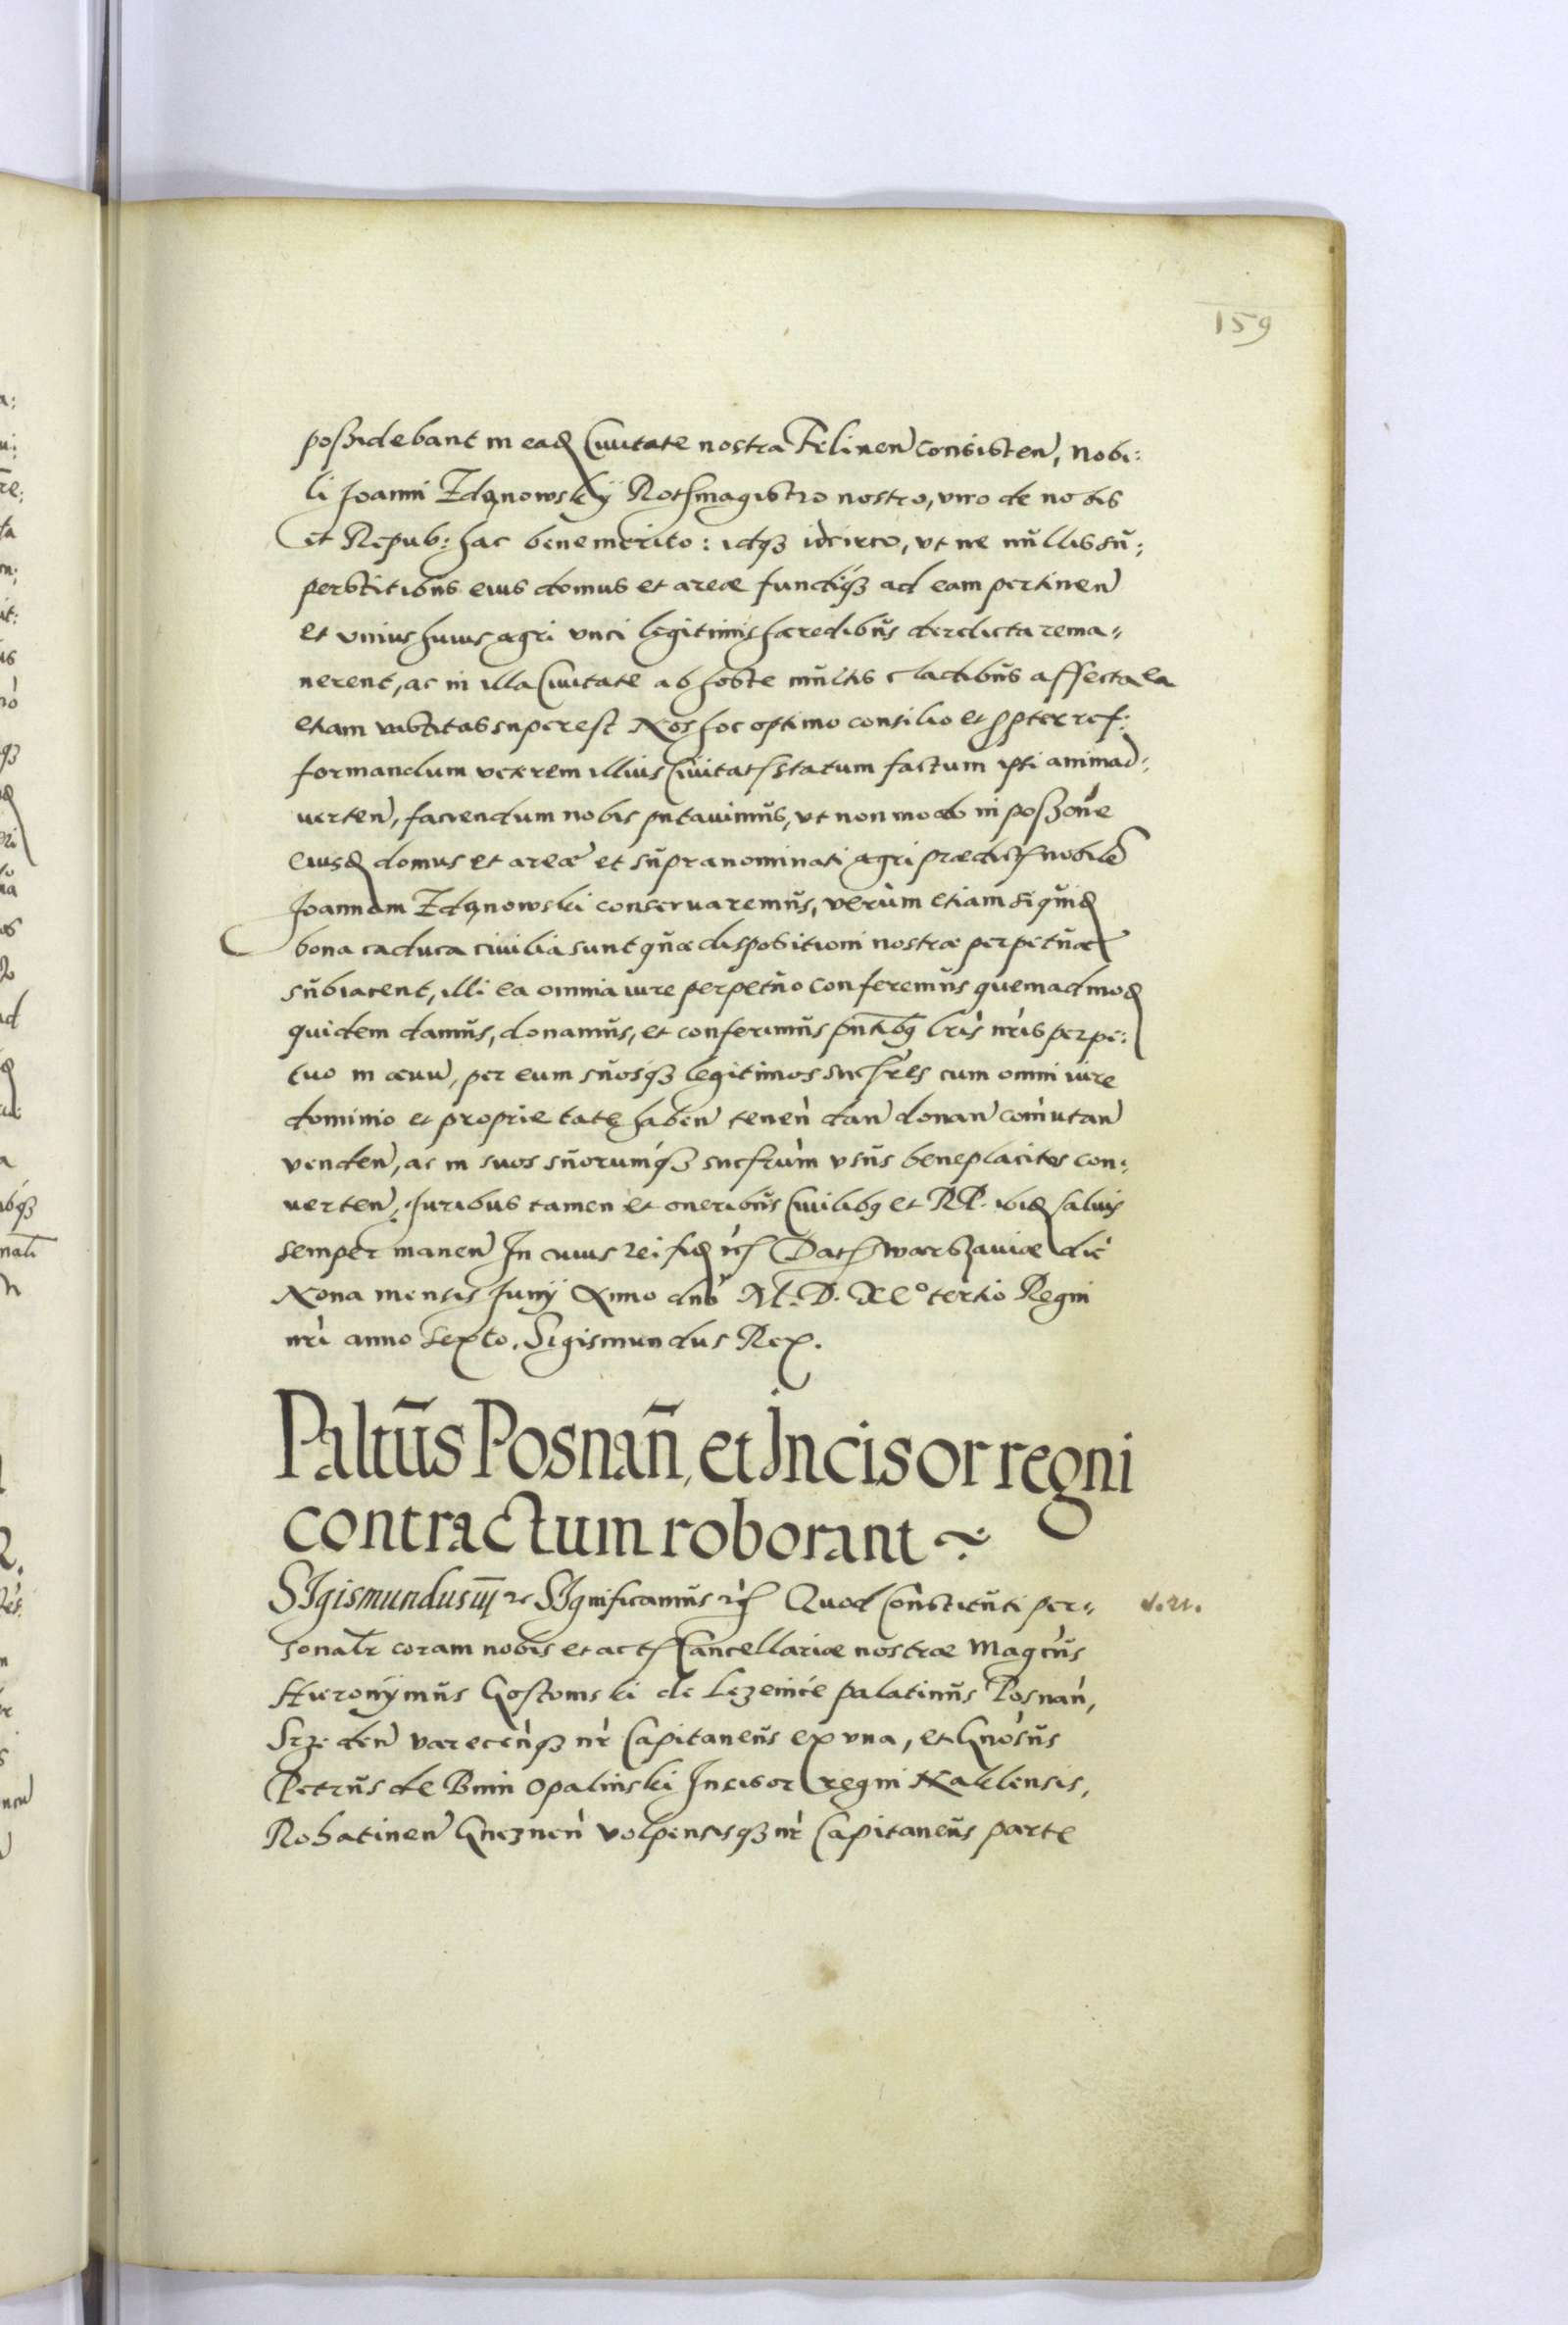 159
possidebant in eadꝫ Ciuitate nostra Felinen̄ consisten̄, Nobi:
li Joanni Zdąnowskÿ Rothmagistro nostro, viro de nobis
et Repub: hac benemerito: idqꝫ idcirco, vt ne nullis sŭ:
perstitibŭs eius domus et areæ fundiqꝫ ad eam pertinen̄
et vnius huius agri vnci legitimis hæredibŭs derelicta rema„
nerent, ac in illa Ciuitate ab hoste mŭltis cladibŭs affecta ea
etiam vastitas superest Nos hoc optimo consilio et ꝓpter ref:
formandum veterem illius Ciuitatꝭ statum factum ipsi animad:
uerten̄, faciendum nobis putauimŭs, vt non modo in possone
eiusdꝫ domus et areæ et sŭpranominati agri prædictꝭ nobilē
Joannem Zdąnowski conseruaremŭs, verùm etiam si quidꝫ
bona caduca ciuilia sunt qŭæ dispositioni nostræ perpetŭæ
sŭbiacent, illi ea omnia iure perpetŭo conferemŭs quemadmodꝫ
quidem damŭs, donamŭs, et conferimŭs pn̄tibꝯ lr̄is nr̄is perpe:
tuo in æuū, per eum sŭosqꝫ legitimos suchr̄es cum omni iure
dominio et proprietate haben̄ tenen̄ dan̄ donan̄ com̄utan̄
venden̄, ac in suos sŭorumqꝫ sucr̄um vsŭs beneplacitos con:
uerten̄, Juribus tamen et oneribŭs Ciuilibꝯ et RP. ibidꝫ saluis
semper manen̄ In cuius rei fidꝫ rc̄ Datꝭ Warszauiæ die
Nona mensis Junÿ Anno dn̄i M. D. XC° tertio Regni
nr̄i anno sexto. Sigismundus Rex.
Paltn̄s Posnan̄, et Incisor regni
contractum roborant
SIgismundus iij rc SIgnificamŭs rc̄ Quod Constitŭti per„
sonalr̄ coram nobis et actꝭ Cancellariæ nostræ Magcŭs
Hieronÿmŭs Gostomski de Lezenice palatinŭs Posnan̄,
Srzeden̄ varecen̄qꝫ nr̄ Capitaneŭs ex vna, et Gnosŭs
Petrŭs de Bnin Opalinski Incisor regni Naklensis,
Rohatinen̄ Gneznen̄ volpensisqꝫ nr̄ Capitaneŭs parte